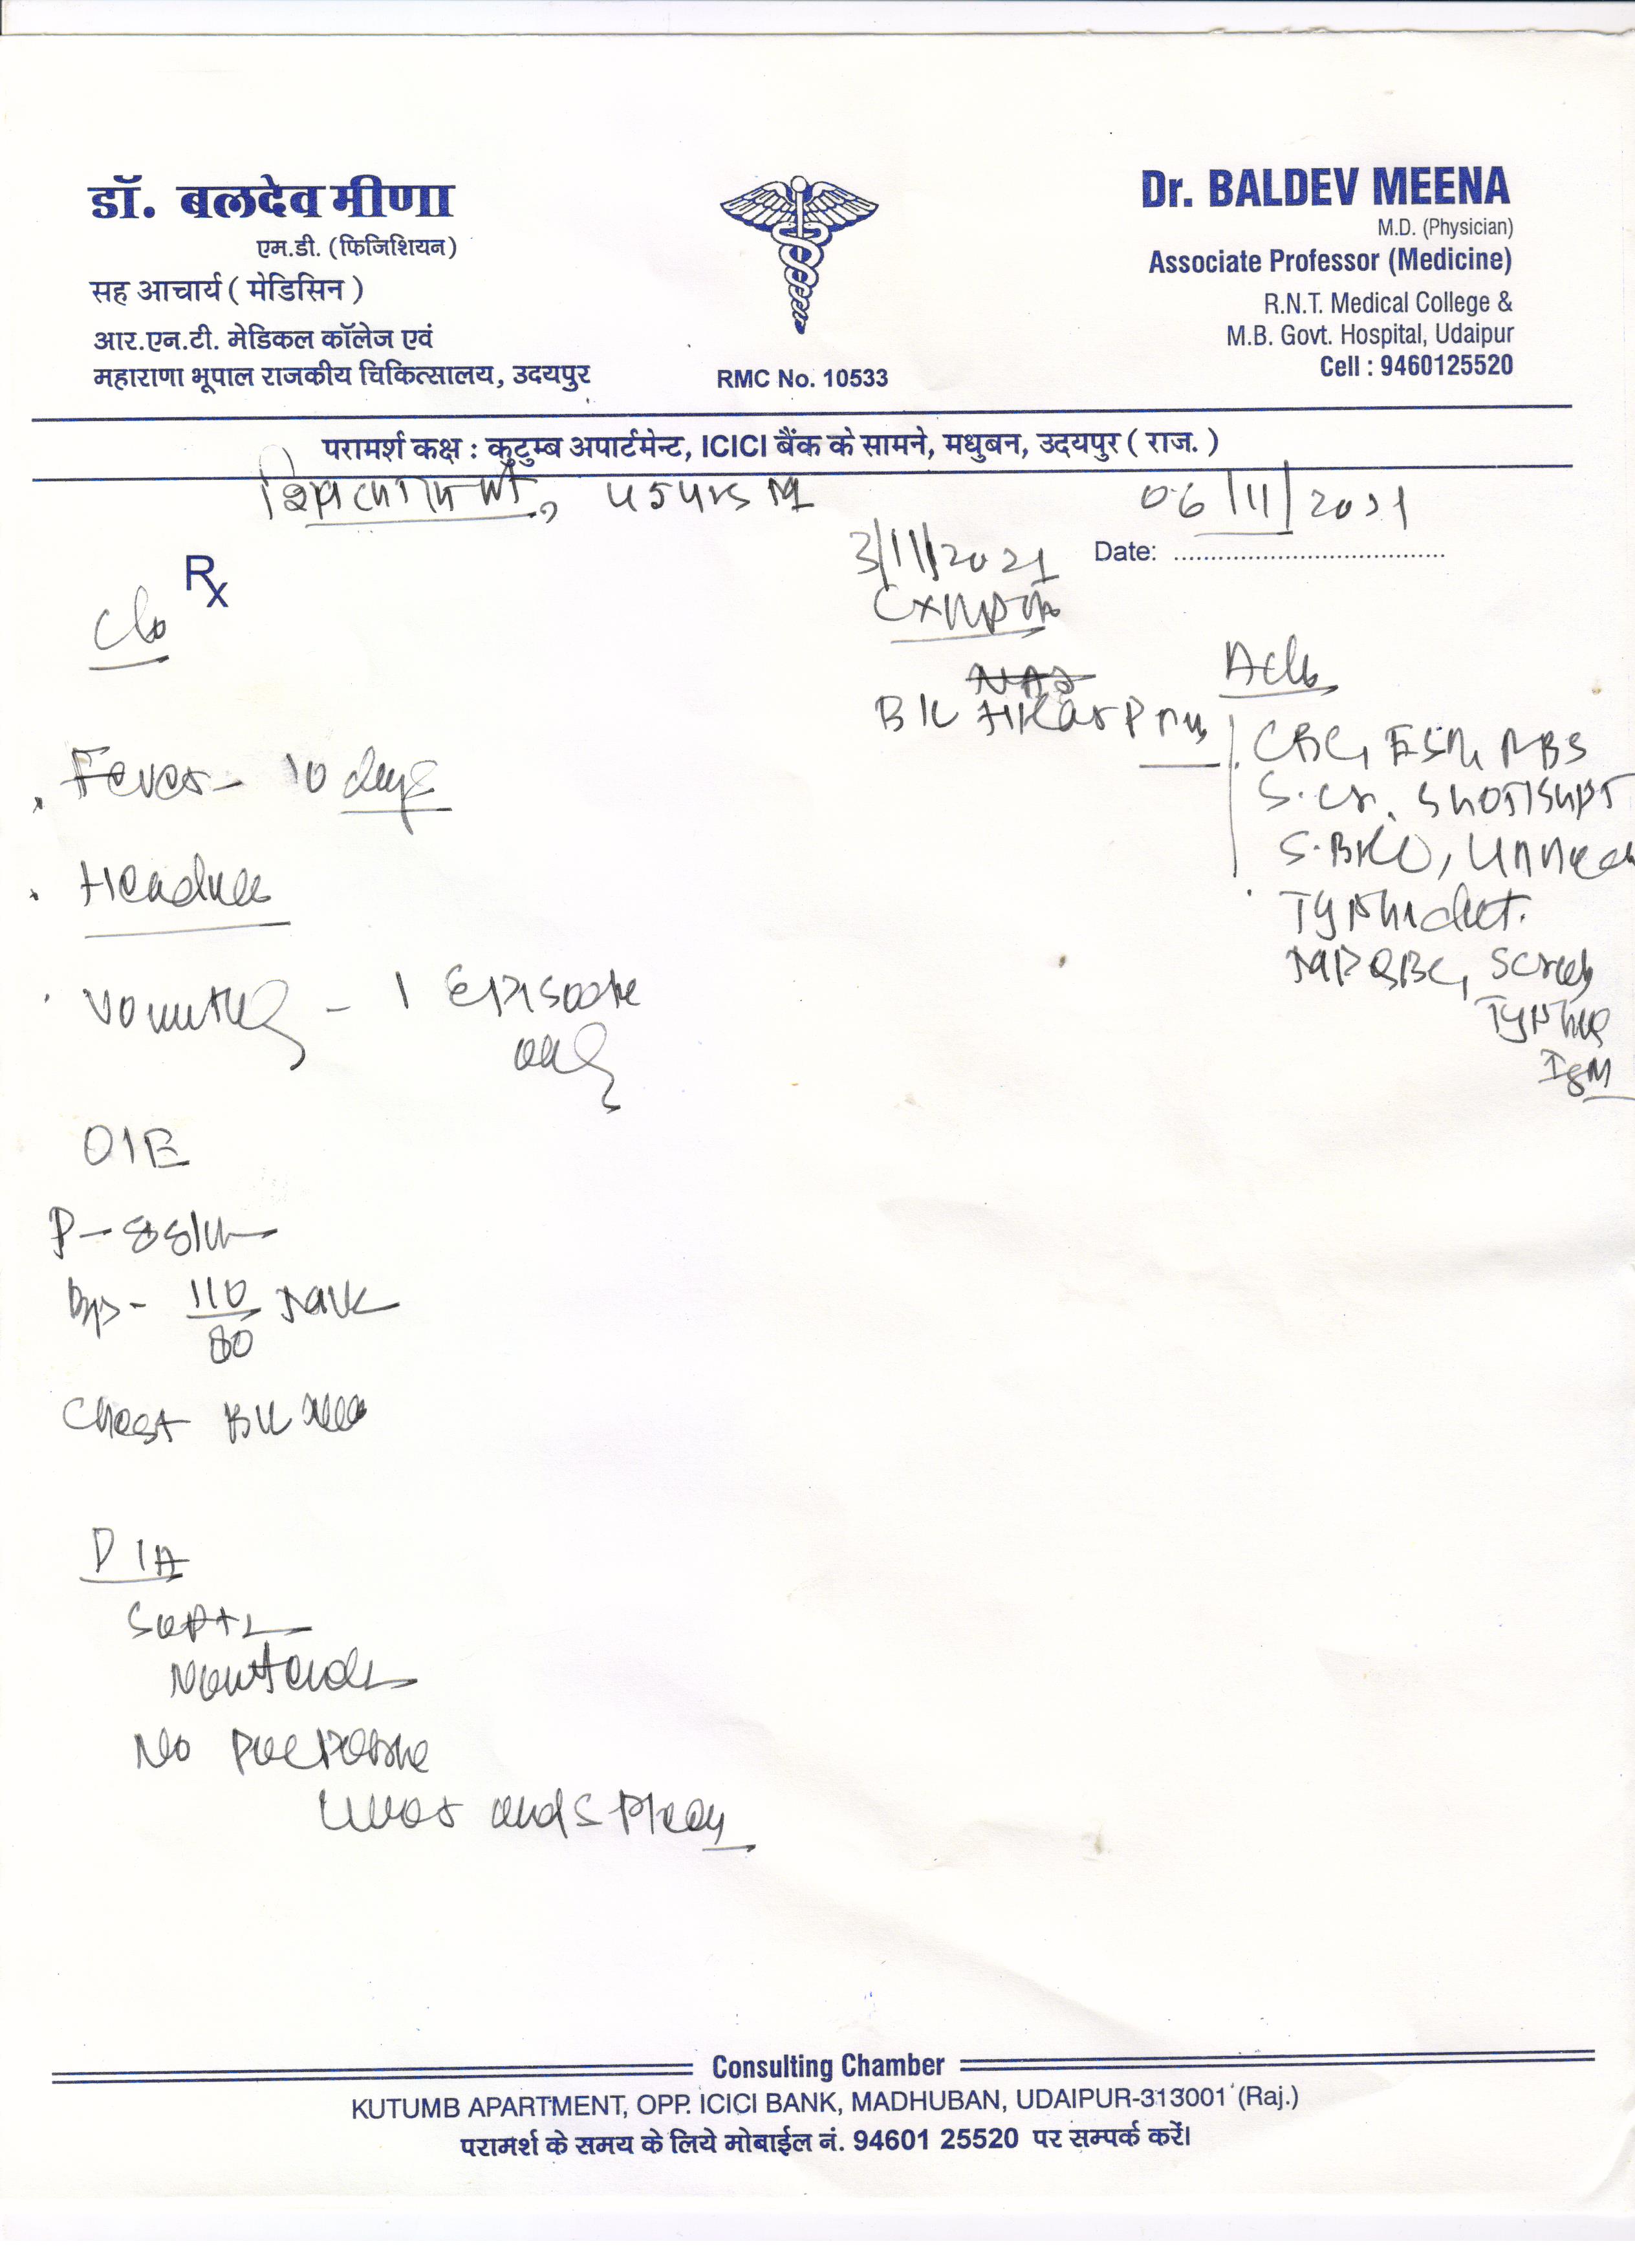 डॉ. बलदेव मीणा
एम.डी. (फिजिशियन)
सह आचार्य ( मेडिसिन )
आर.एन.टी. मेडिकल कॉलेज एवं
महाराणा भूपाल राजकीय चिकित्सालय, उदयपुर
RMC No. 10533
Dr. BALDEV MEENA
M.D. (Physician)
Associate Professor (Medicine)
R.N.T. Medical College &
M.B. Govt. Hospital, Udaipur
Cell : 9460125520
परामर्श कक्ष : कुटुम्ब अपार्टमेन्ट, ICICI बैंक के सामने, मधुबन, उदयपुर ( राज. )
06/11/2021
Date: ....................................
3/11/2021
Rx
C/o
Fever - 10 days
Headache
Vomiting - 1 Episode
only
O/E
P - 88/m
Bp - 110/80
Chest B/L
P/A
Soft
Nontender
No Palpable
Liver and Spleen
B/L Hilar
Adv
CBC, ESR, RBS
S.Cr. SGOT/SGPT
Typhidot.
MPQBC, Scrub
Typhus
IgM
Consulting Chamber
KUTUMB APARTMENT, OPP. ICICI BANK, MADHUBAN, UDAIPUR-313001 (Raj.)
परामर्श के समय के लिये मोबाईल नं. 94601 25520 पर सम्पर्क करें।